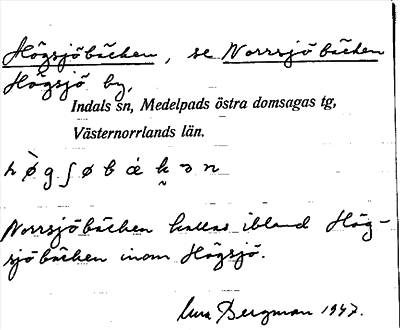 Högsjöbäcken, se Norrsjöbäcken
Högsjö by,
Indals sn, Medelpads östra domsagas tg,
Västernorrlands län.
Norrsjöbäcken kallas ibland Hög-
sjöbäcken inom Högsjö.
Bergman 1947.